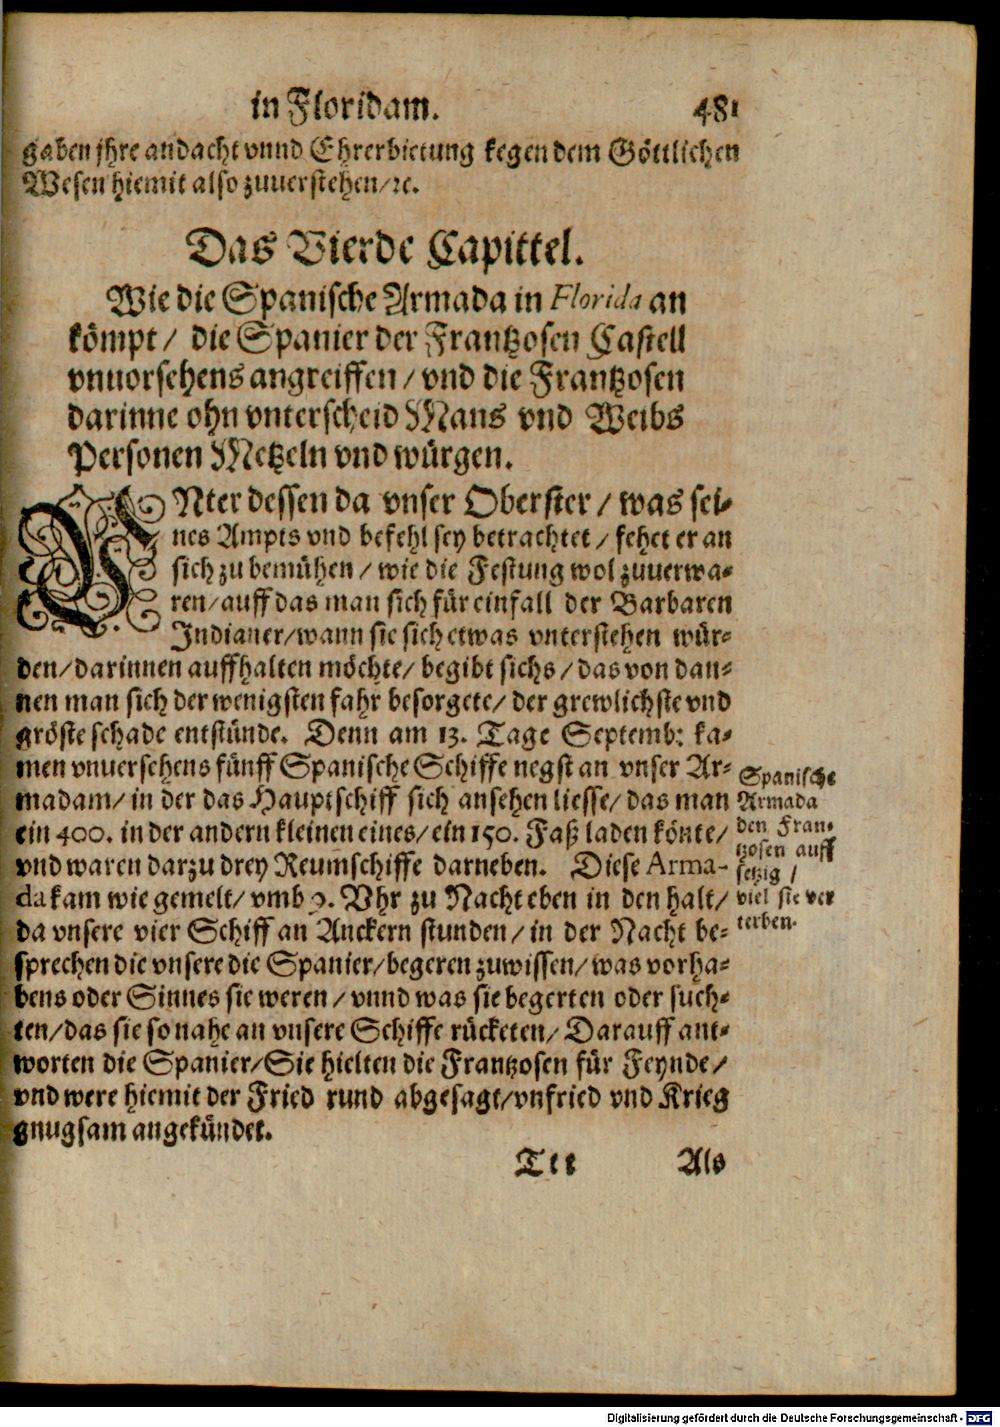 in Floridam. 481
gaben jhre andacht vnnd Ehrerbietung kegen dem Göttlichen
Wesen hiemit also zuuerstehen/ ꝛc.
Das Vierde Capittel.
Wie die Spanische Armada in Florida an
kömpt/ die Spanier der Frantzosen Castell
vnuorsehens angreiffen/ vnd die Frantzosen
darinne ohn vnterscheid Mans vnd Weibs
Personen Metzeln vnd würgen.
VNter dessen da vnser Oberster/ was sei-
nes Ampts vnd befehl sey betrachtet/ fehet er an
sich zu bemühen/ wie die Festung wol zuuerwa-
ren/ auff das man sich für einfall der Barbaren
Indianer/ wann sie sich etwas vnterstehen wür-
den/ darinnen auffhalten möchte/ begibt sichs/ das von dan-
nen man sich der wenigsten fahr besorgete/ der grewlichste vnd
gröste schade entstünde. Denn am 13. Tage Septemb: ka-
men vnuersehens fünff Spanische Schiffe negst an vnser Ar-
madam/ in der das Hauptschiff sich ansehen liesse/ das man
ein 400. in der andern kleinen eines/ ein 150. Faß laden könte/
vnd waren darzu drey Reumschiffe darneben. Diese Arma-
da kam wie gemelt/ vmb 9. Vhr zu Nacht eben in den halt/
da vnsere vier Schiff an Anckern stunden/ in der Nacht be-
sprechen die vnsere die Spanier/ begeren zuwissen/ was vorha-
bens oder Sinnes sie weren/ vnnd was sie begerten oder such-
ten/ das sie so nahe an vnsere Schiffe rücketen/ Darauff ant-
worten die Spanier/ Sie hielten die Frantzosen für Feynde/
vnd were hiemit der Fried rund abgesagt/ vnfried vnd Krieg
gnugsam angekündet.
Spanische
Armada
den Fran-
tzosen auff
setzig/
viel sie ver
terben.
Ttt Als
Digitalisierung gefördert durch die Deutsche Forschungsgemeinschaft - DFG